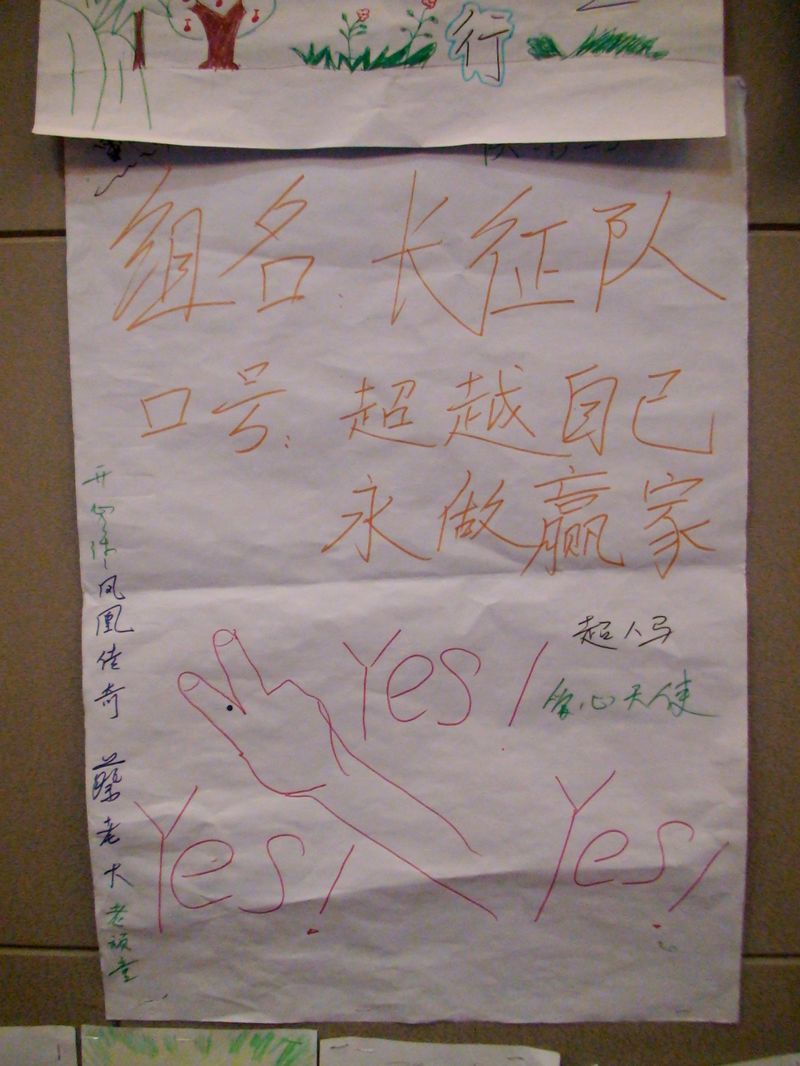 行
组名:长征队
口号:超越自己
永做赢家
超人马
Yes!
爱心天使
Yes!
Yes!
开心
凤凰传奇
蔡老大
老顽童